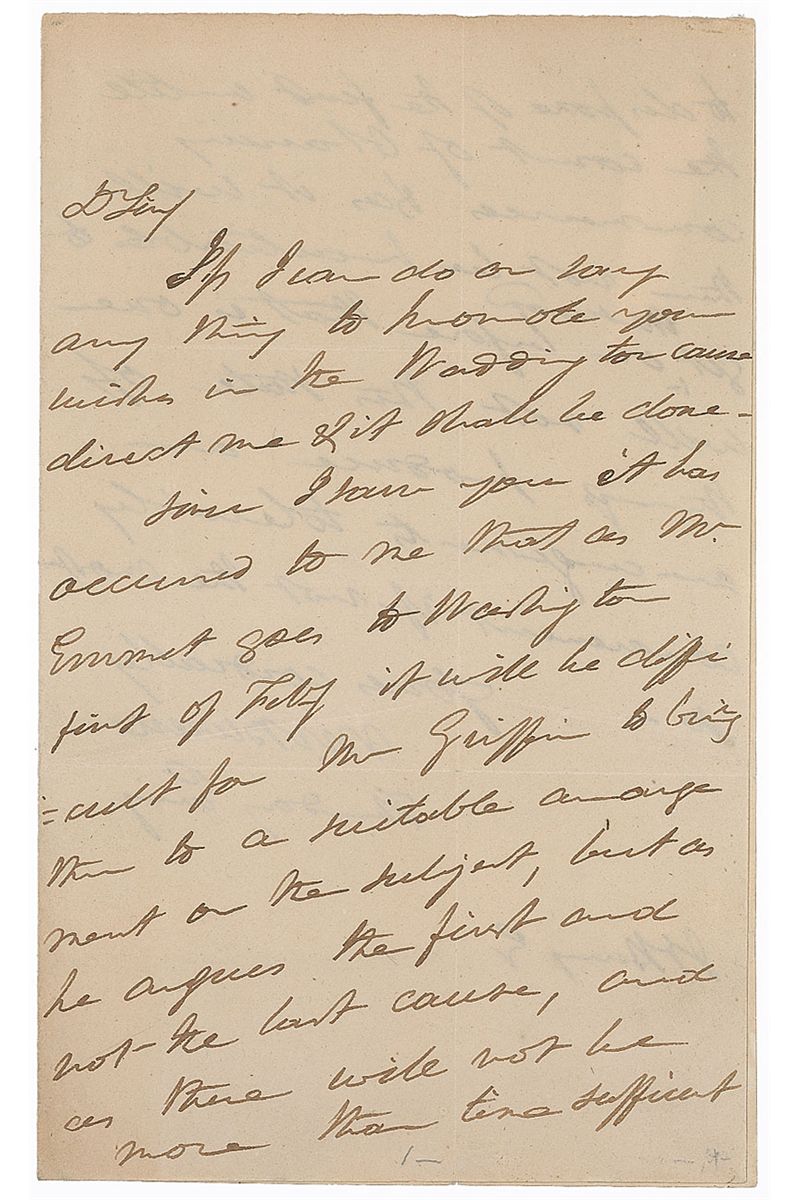 Dr Sir,
If I can do or say
any thing to promote your
wishes in the Waddington cause
direct me & it shall be done -
since I saw you it has
occurred to me that as Mr.
Emmet goes to Washington
first of Feby it will be diffi
=cult for Mr Griffin to bring
them to a suitable arrange
ment on the subject, but as
he argues the first and
not the last cause, and
as there will not be
more than time sufficient